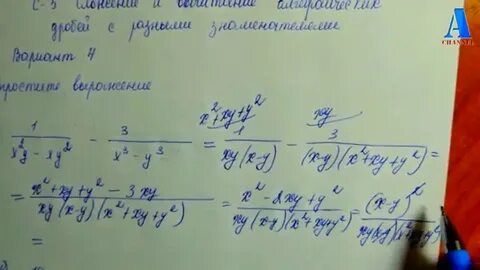 С-3 Сложение и вычитание алгебраических
дробей с разными знаменателями
A
CHANNEL
Вариант 4
простите выражение
x²+xy+y² xy
1/(x²y - xy²) - 3/(x³ - y³) = 1/(xy(x-y)) - 3/((x-y)(x²+xy+y²)) =
= (x²+xy+y² - 3xy)/(xy(x-y)(x²+xy+y²)) = (x² - 2xy + y²)/(xy(x-y)(x²+xy+y²)) = (x-y)²/(xy(x-y)(x²+xy+y²))
=